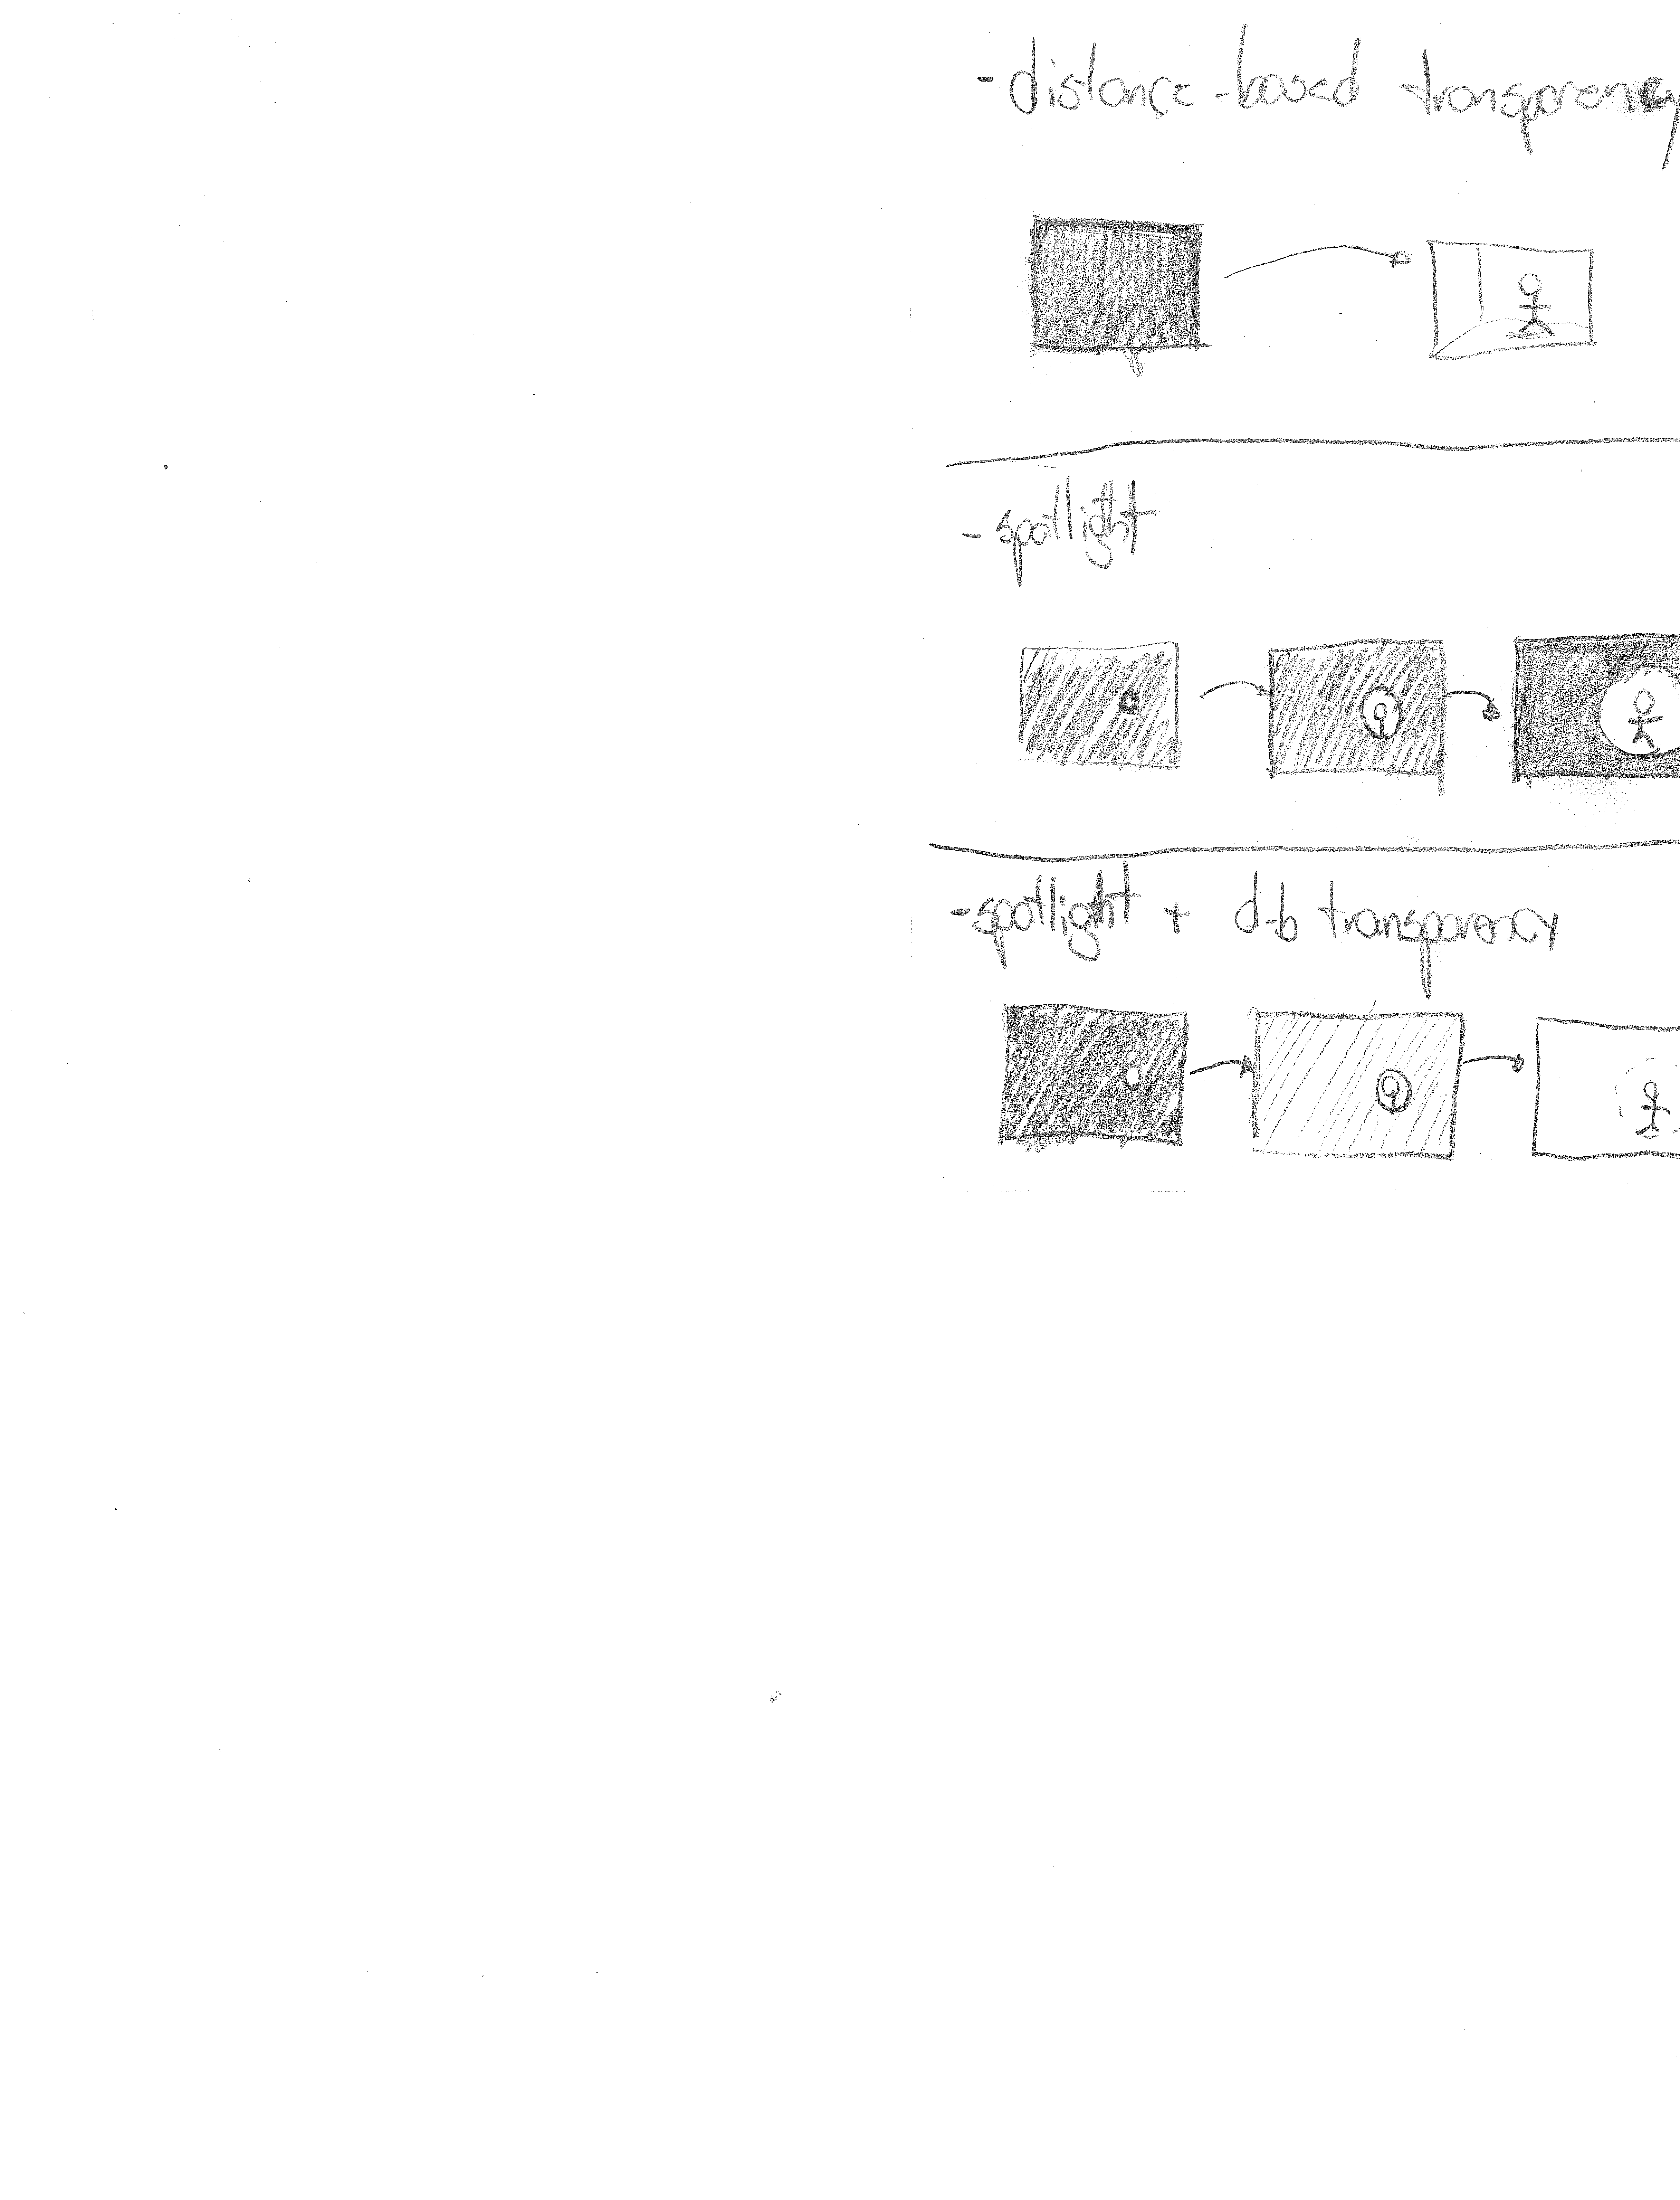 - distance-based transparency
- spotlight
- spotlight + d-b transparency